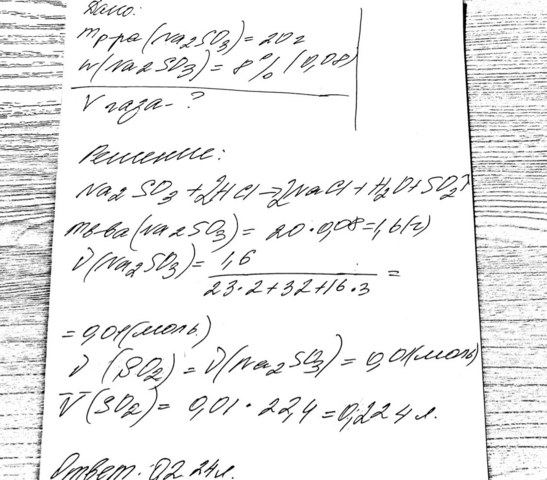 Дано:
m р-ра (Na2SO3) = 20 г
w(Na2SO3) = 8% (0,08)
V газа - ?
Решение:
Na2SO3 + 2HCl → 2NaCl + H2O + SO2↑
m в-ва (Na2SO3) = 20 · 0,08 = 1,6 (г)
ν(Na2SO3) = 1,6
23·2+32+16·3 =
= 0,01 (моль)
ν (SO2) = ν(Na2SO3) = 0,01 (моль)
V(SO2) = 0,01 · 22,4 = 0,224 л.
Ответ: 0,224 л.